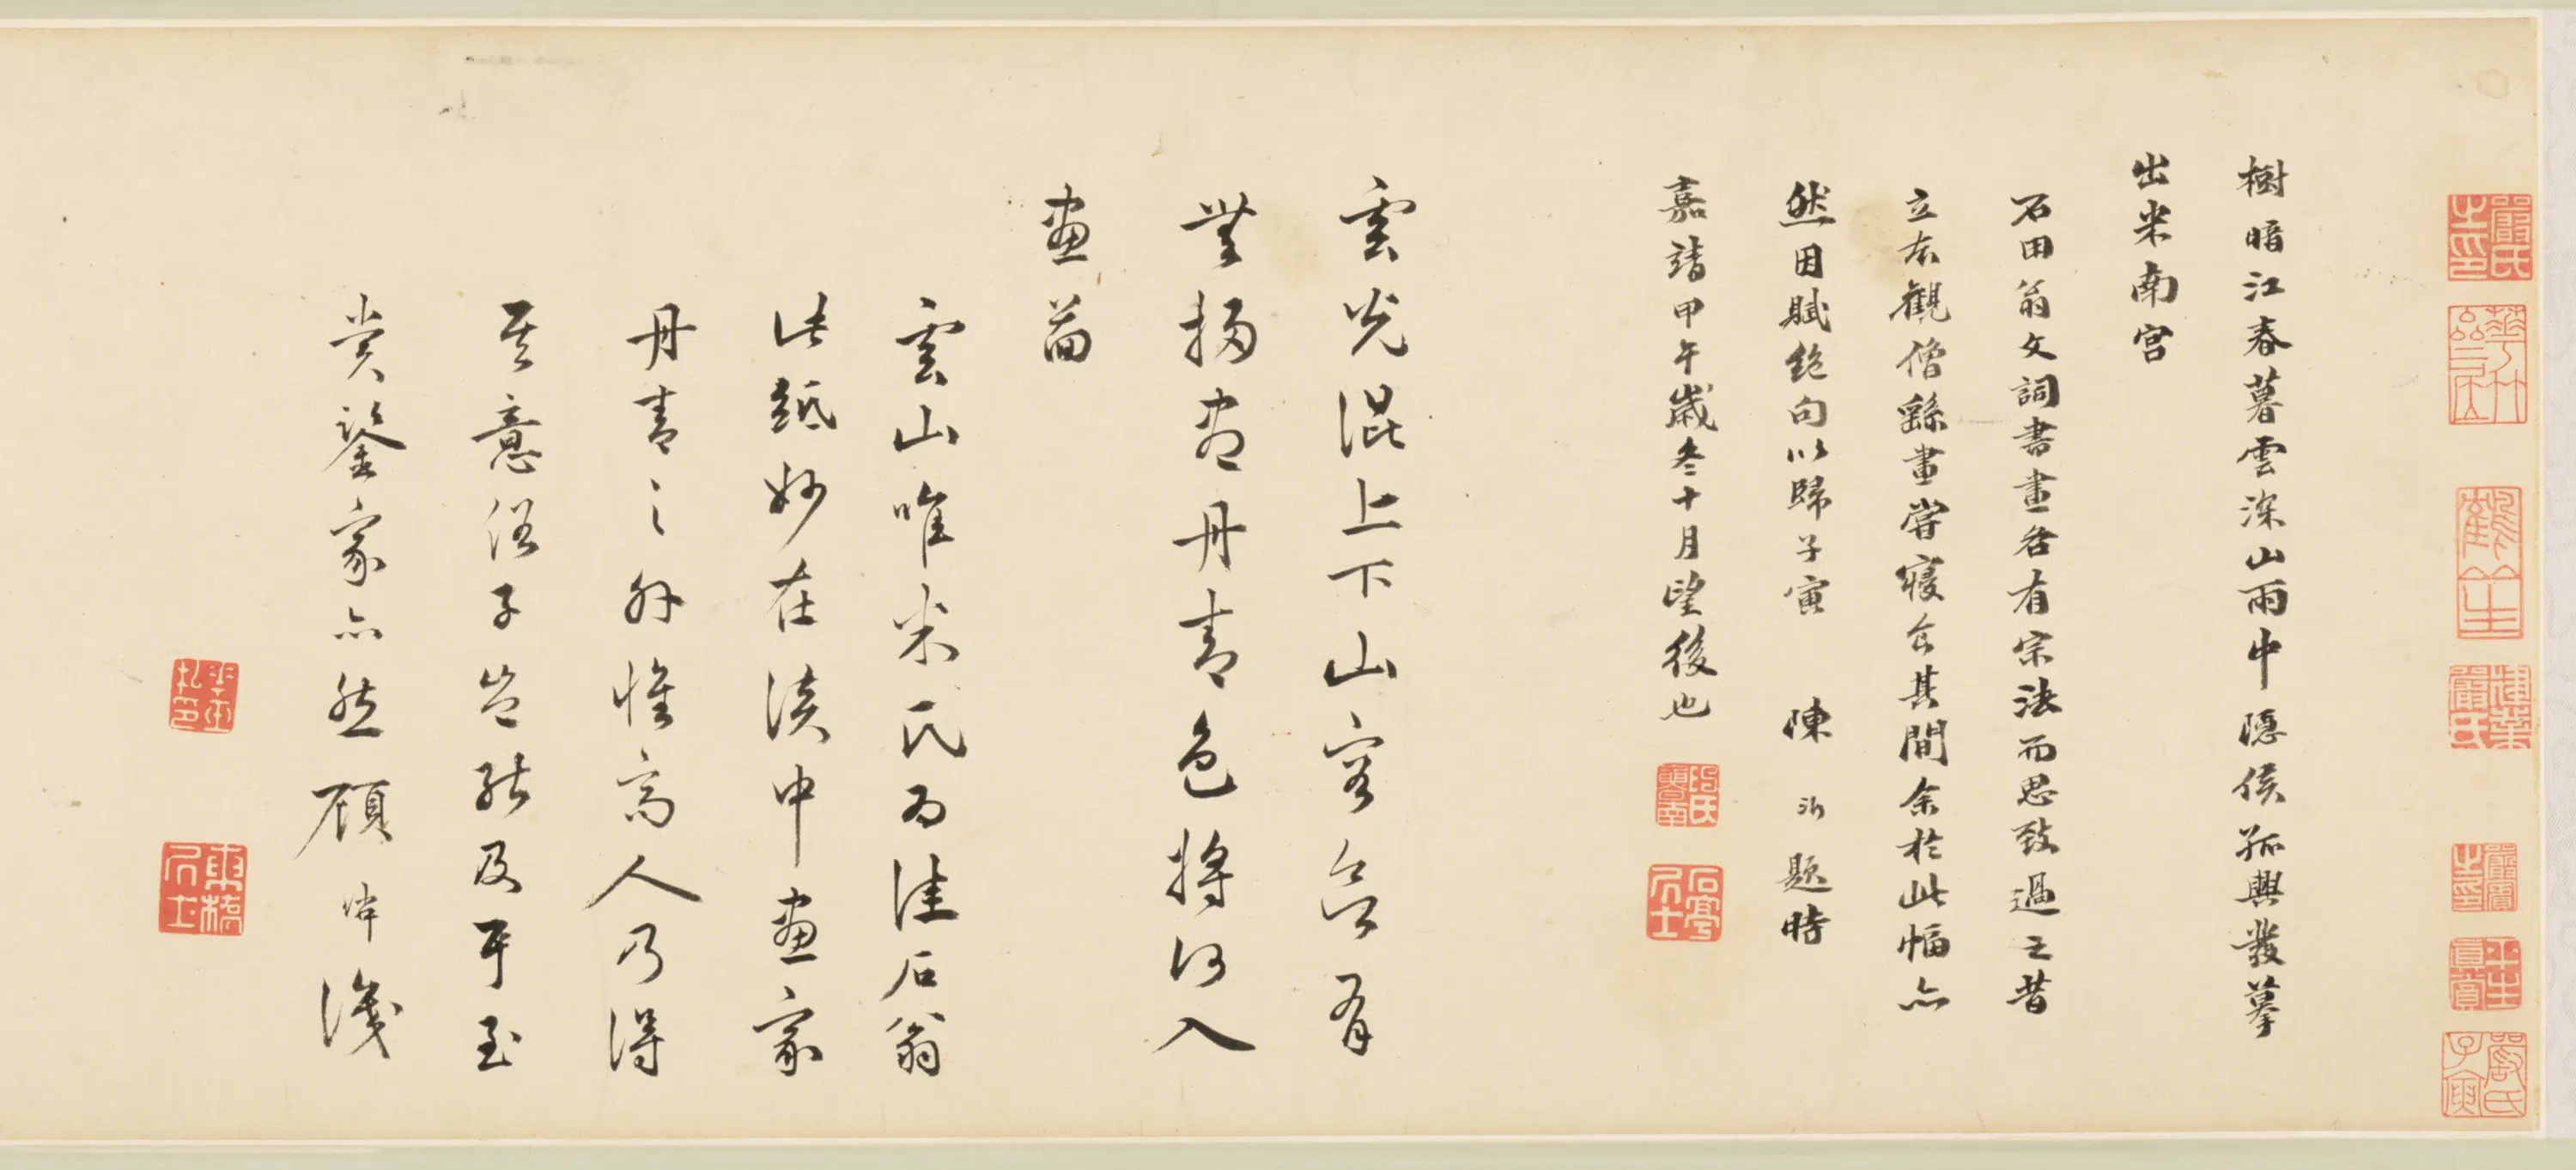 樹暗江春暮雲深山雨中隱侯孤興發摹
出米南宮
石田翁文詞書畫各有宗法而思致過之昔
立本觀僧繇畫嘗寢食其間余於此幅亦
然因賦絕句以歸子寅 陳沂題時
嘉靖甲午歲冬十月望後也
雲光混上下山容合有
無揚盡丹青色將何入
畫啚
雲山唯米氏為佳石翁
此紙妙在淡中畫家
丹青之外惟高人乃得
其意俗子豈能及耳至
賞鑒家亦然 顧 識